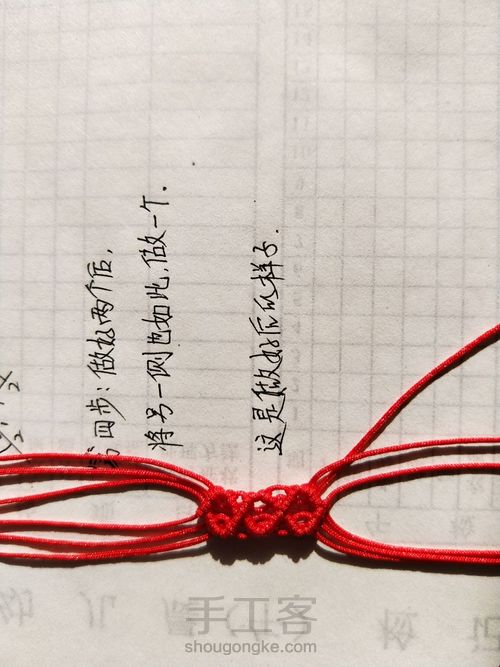 第四步：做好两个后，
将另一侧也如此，做一个．
这是做好后的样子．
手工客
shougongke.com